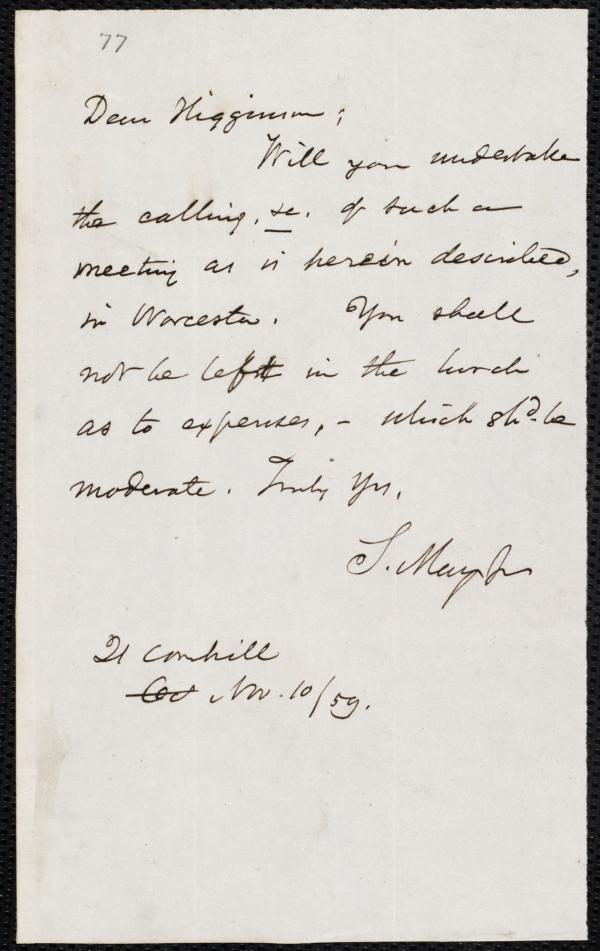 77
Dear Higginson;
Will you undertake
the calling, &c. of such a
meeting as is herein described,
in Worcester. You shall
not be left in the lurch
as to expenses, - which sh'd. be
moderate. Truly Yrs,
S. May Jr
21 Cornhill
Oct Nov. 10/59.